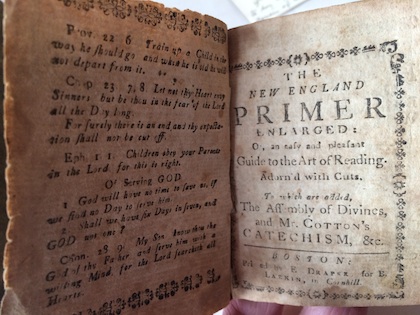 Prov. 22 6 Train up a Child in the
way he should go and when he is old he will
not depart from it.
Chap 23, 7, 8. Let not thy Heart envy
Sinners but be thou in the fear of the Lord
all the Day long.
For surely there is an end and thy expecta-
tion shall not be cut off.
Eph. 1 Children obey your Parents
in the Lord for this is right.
Of Serving GOD.
1 God will have no time to save us, if
we find no Day to serve him.
2 Shall we have Six Days in seven, and
GOD not one?
Chron. 28. 9. My Son know thou the
God of thy Father and serve him with a
willing Mind for the Lord searcheth all
Hearts.
THE
NEW ENGLAND
PRIMER
ENLARGED:
Or, an easy and pleasant
Guide to the Art of Reading.
Adorn'd with Cuts.
To which are added,
The Assembly of Divines,
and Mr. COTTON's
CATECHISM, &c.
BOSTON:
Printed by E. DRAPER for B
LARKIN, in Cornhill.